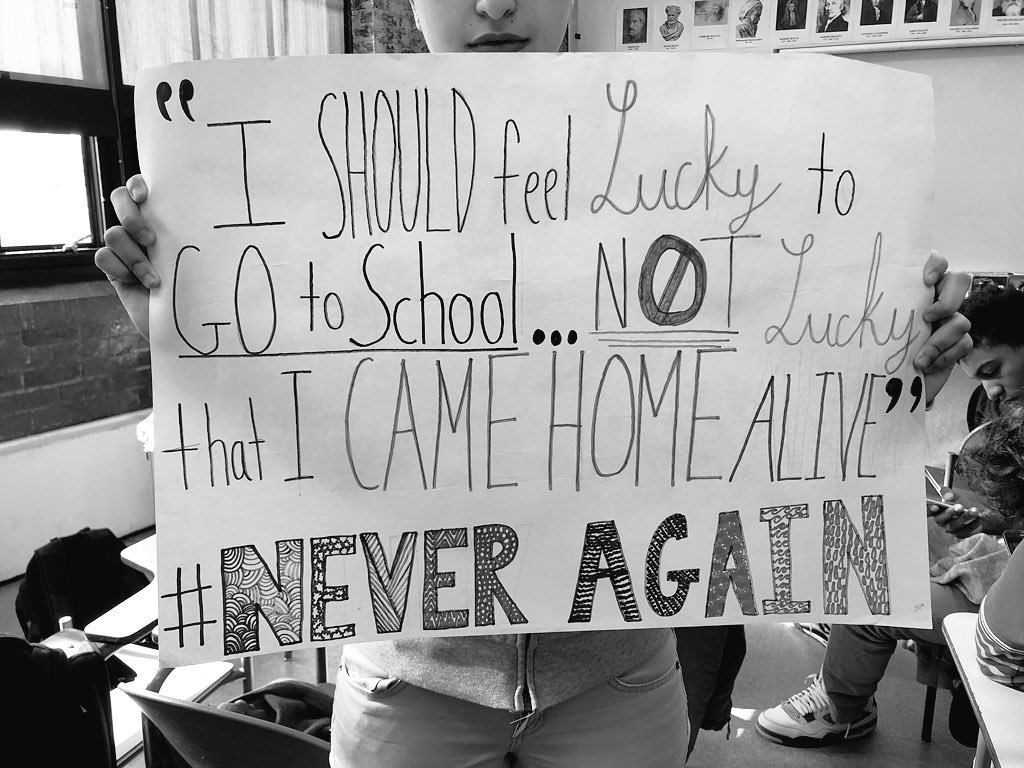 "I SHOULD feel Lucky to
GO to School... NOT Lucky
that I CAME HOME ALIVE"
#NEVER AGAIN